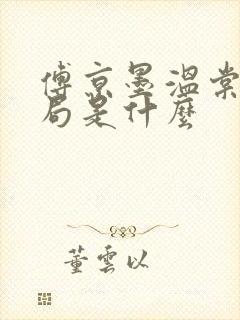 傅京墨溫棠
局是什麼
董雲以